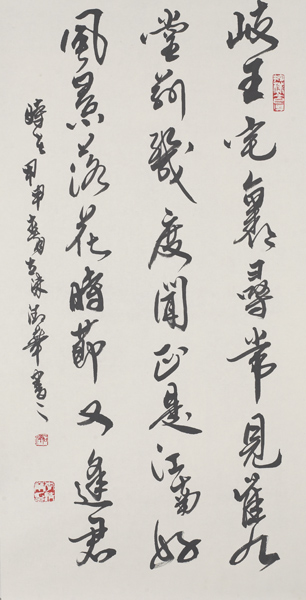 岐王宅裏尋常見崔九
堂前幾度聞正是江南好
風景落花時節又逢君
時在甲申春華書